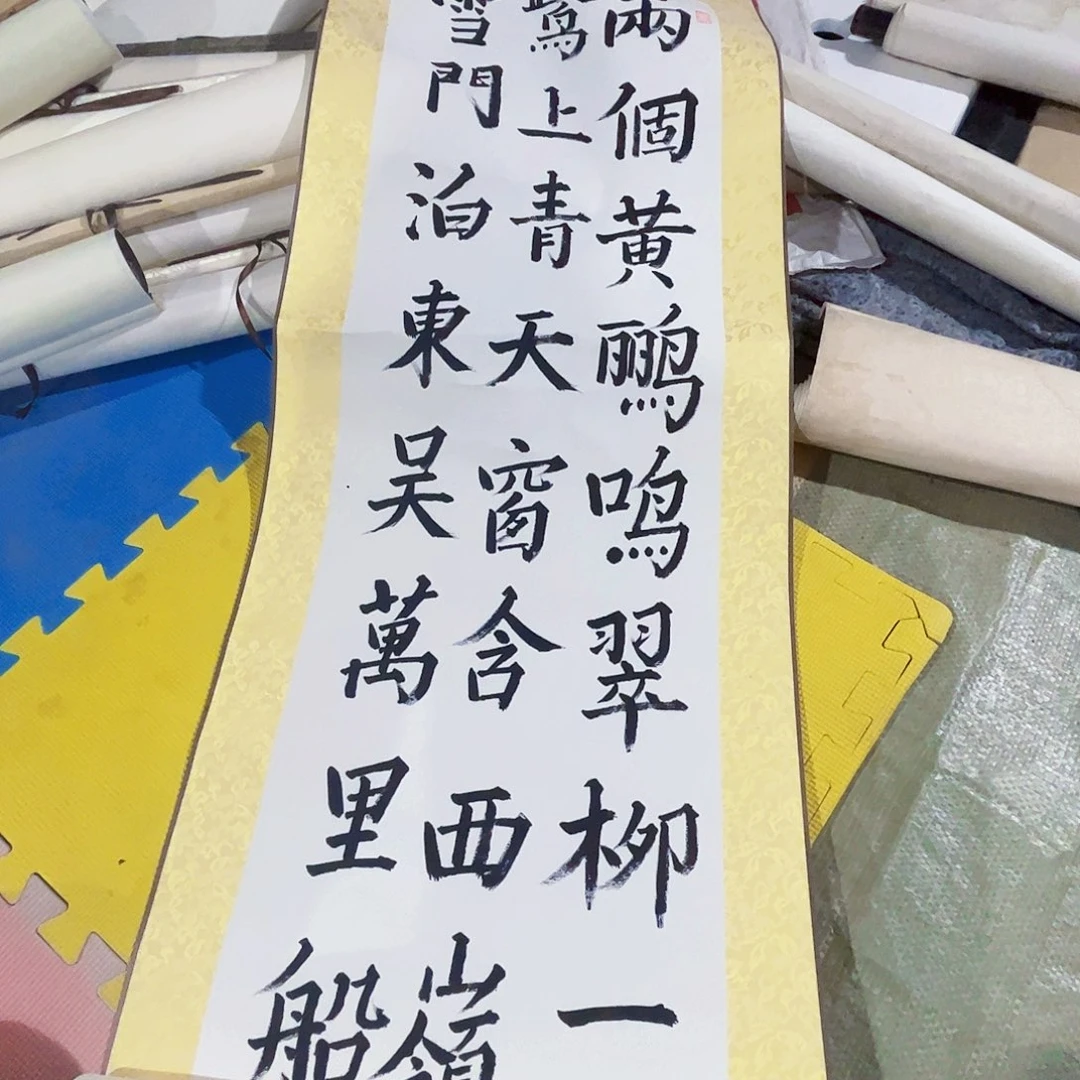 兩個黄鹂鳴翠柳一
鷺上青天窗含西嶺
雪門泊東吴萬里船